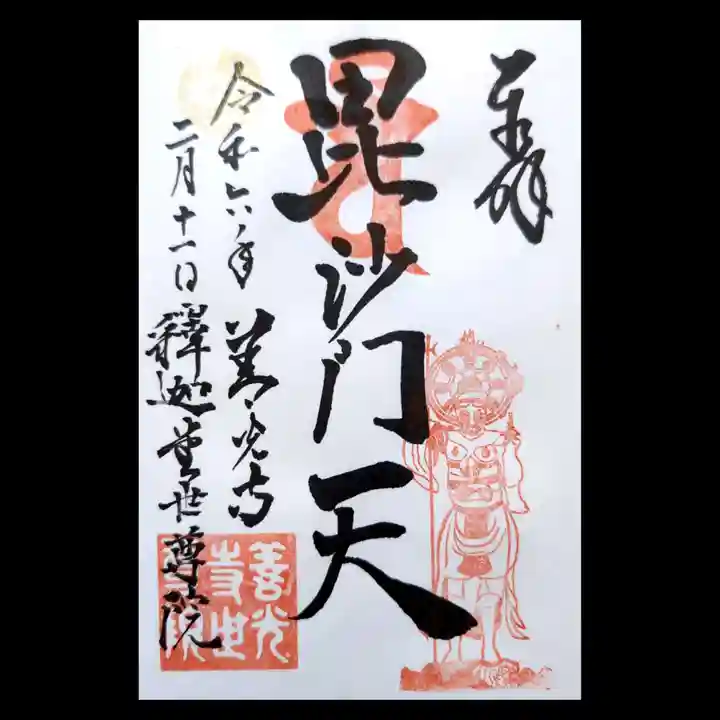 奉拝
毘沙門天
善光寺
釋迦堂世尊院
令和六年
二月十一日
善光
寺世
尊院